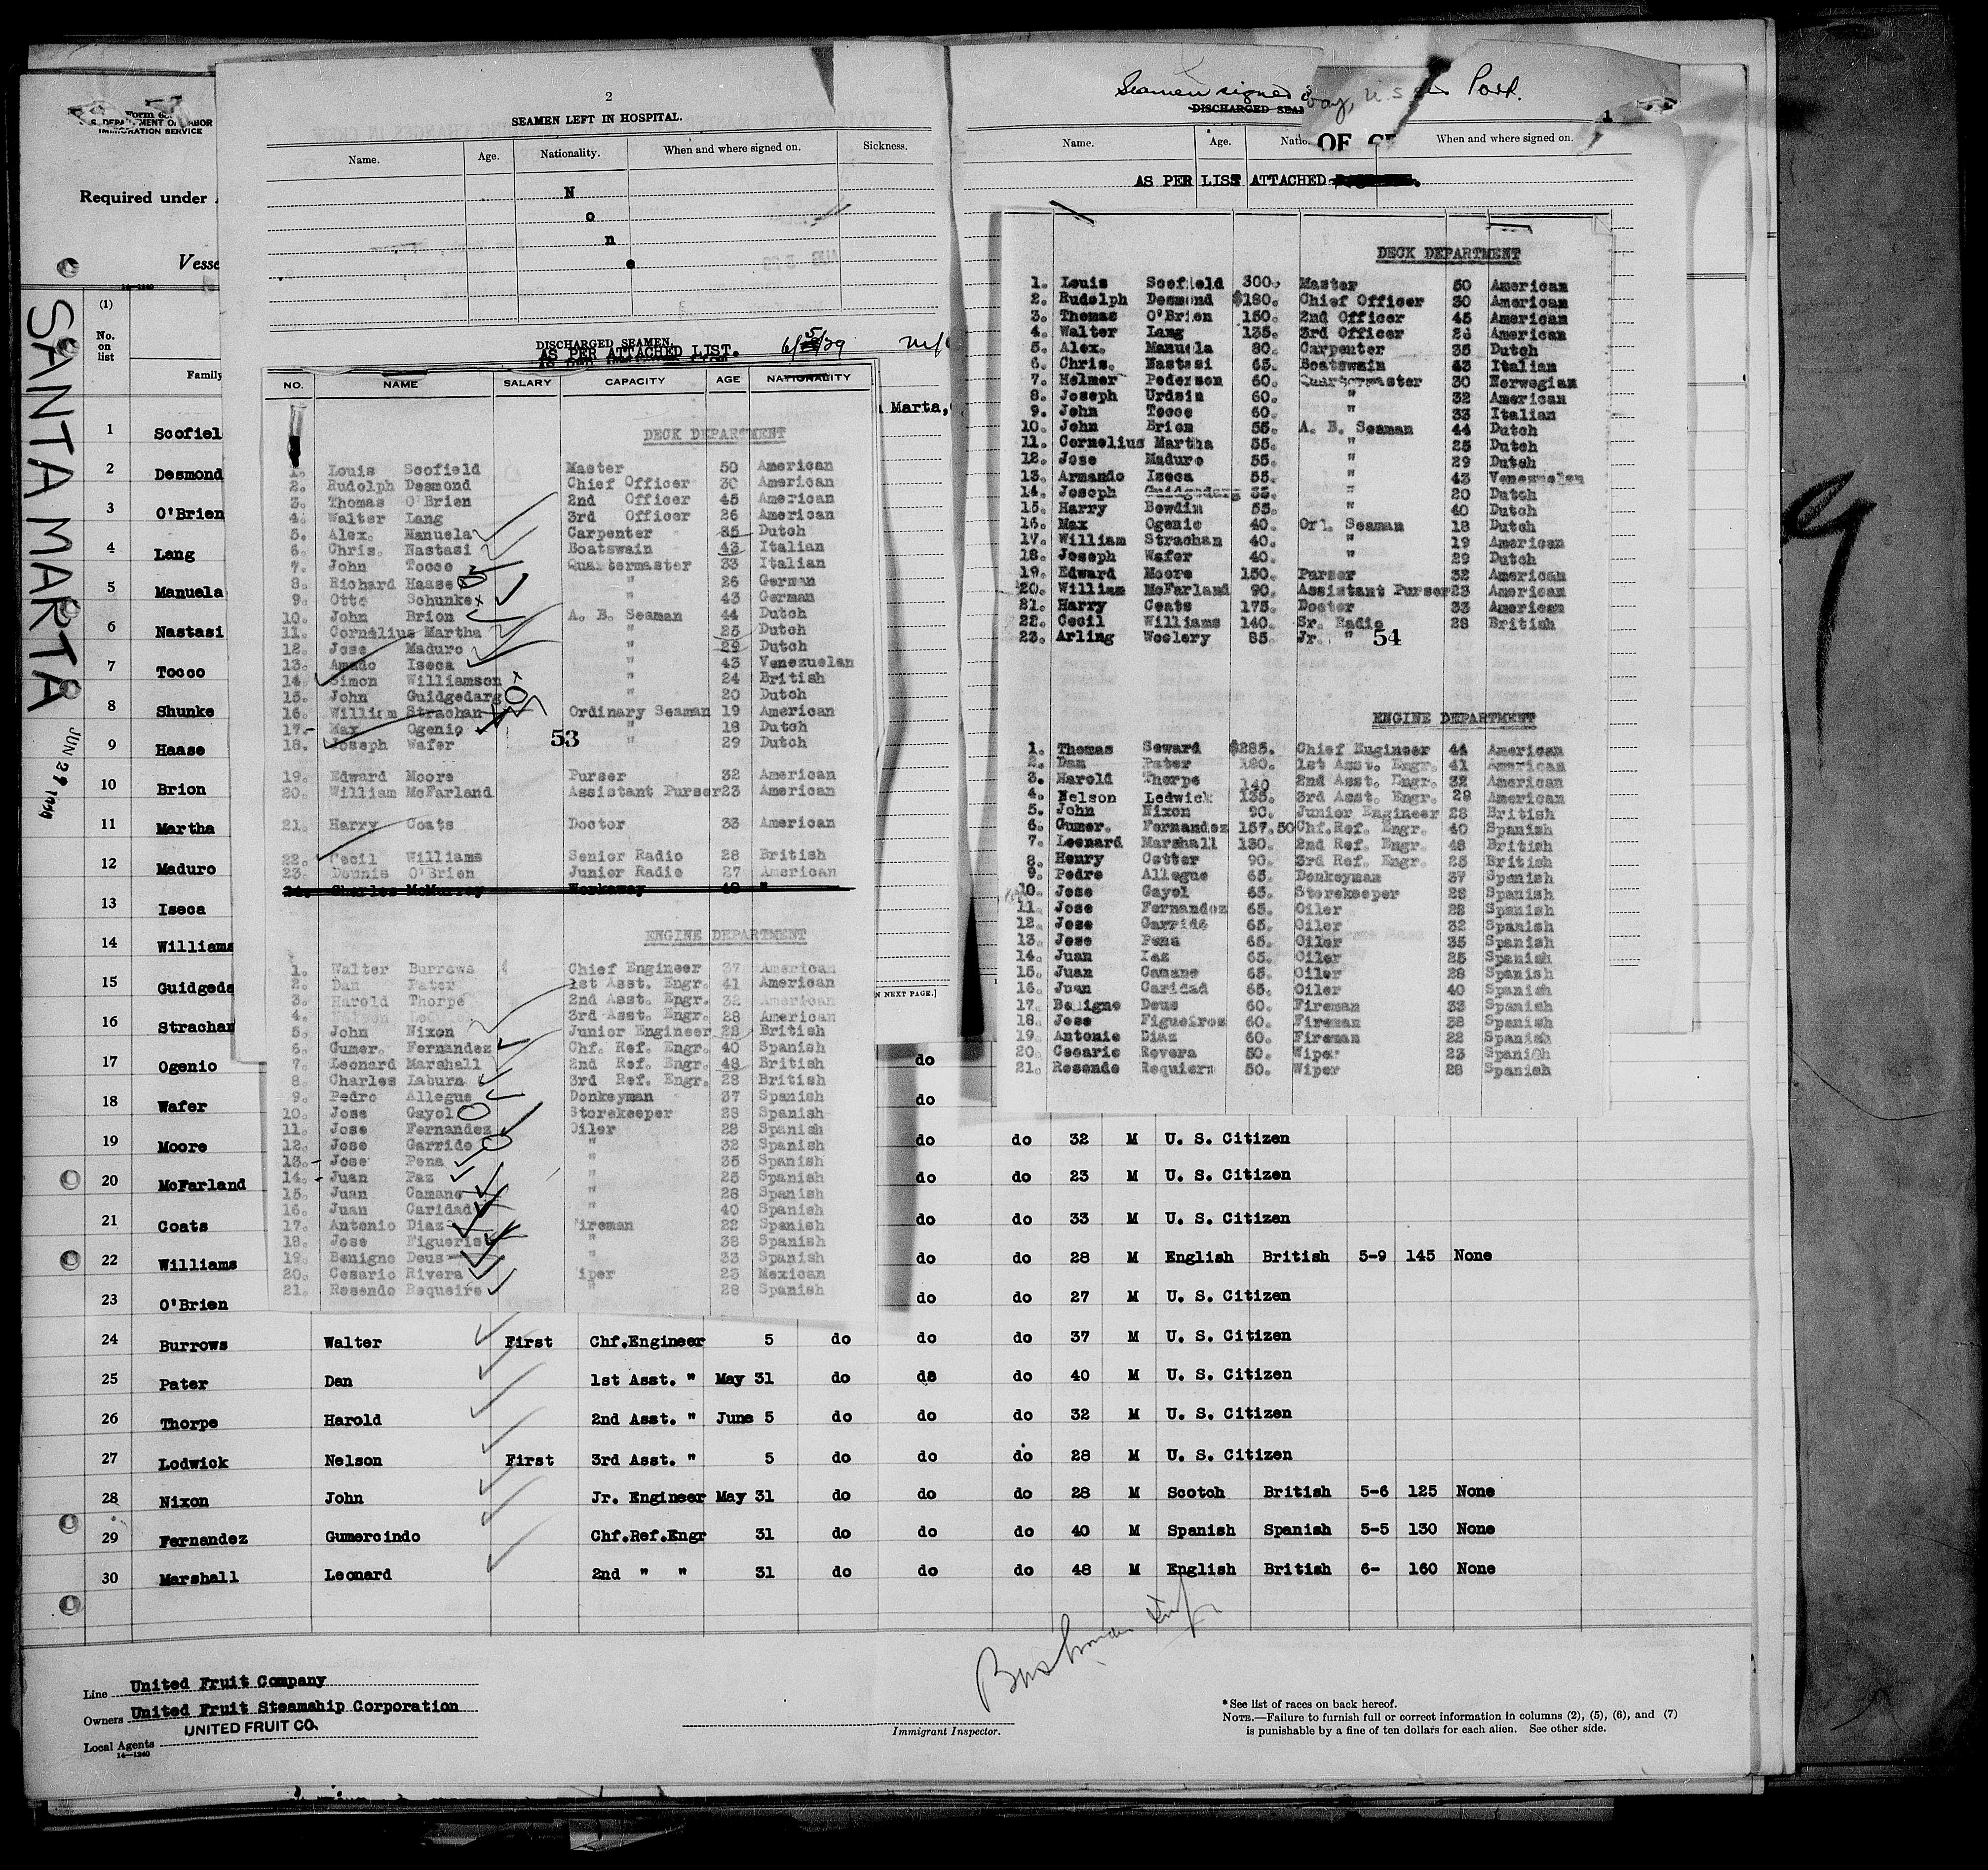 Form 6
U.S. DEPARTMENT OF LABOR
IMMIGRATION SERVICE
Required under
Vesse
14-1240
SANTA MARTA
JUN 29 1929
2
SEAMEN LEFT IN HOSPITAL.
Name. Age. Nationality. When and where signed on. Sickness.
N
o
n
e
DISCHARGED SEAMEN.
AS PER ATTACHED LIST. 6/5/29
NO. NAME SALARY CAPACITY AGE NATIONALITY
DECK DEPARTMENT
1. Louis Scofield Master 50 American
2. Rudolph Desmond Chief Officer 30 American
3. Thomas O'Brien 2nd Officer 45 American
4. Walter Lang 3rd Officer 26 American
5. Alex. Manuela Carpenter 35 Dutch
6. Chris. Nastasi Boatswain 43 Italian
7. John Tocco Quartermaster 33 Italian
8. Richard Haase " 26 German
9. Otto Schunke " 43 German
10. John Brion A. B. Seaman 44 Dutch
11. Cornelius Martha " 25 Dutch
12. Jose Maduro " 29 Dutch
13. Amado Iseca " 43 Venezuelan
14. Simon Williamson " 24 British
15. John Guidgedarg " 20 Dutch
16. William Strachan Ordinary Seaman 19 American
17. Max Ogenio " 18 Dutch
18. Joseph Wafer 53 " 29 Dutch
19. Edward Moore Purser 32 American
20. William McFarland Assistant Purser 23 American
21. Harry Coats Doctor 33 American
22. Cecil Williams Senior Radio 28 British
23. Dennis O'Brien Junior Radio 27 American
24. Charles McMurray Workaway 19 "
ENGINE DEPARTMENT
1. Walter Burrows Chief Engineer 37 American
2. Dan Pater 1st Asst. Engr. 41 American
3. Harold Thorpe 2nd Asst. Engr. 32 American
4. Nelson 3rd Asst. Engr. 28 American
5. John Nixon Junior Engineer 28 British
6. Gumer. Fernandez Chf. Ref. Engr. 40 Spanish
7. Leonard Marshall 2nd Ref. Engr. 48 British
8. Charles Laburn 3rd Ref. Engr. 28 British
9. Pedro Allegue Donkeyman 37 Spanish
10. Jose Gayol Storekeeper 28 Spanish
11. Jose Fernandez Oiler 28 Spanish
12. Jose Garrido " 32 Spanish
13. Jose Pena " 35 Spanish
14. Juan Paz " 25 Spanish
15. Juan Camano " 28 Spanish
16. Juan Caridad " 40 Spanish
17. Antonio Diaz Fireman 22 Spanish
18. Jose Figueris " 38 Spanish
19. Benigno Deus " 33 Spanish
20. Cesario Rivera Wiper 23 Mexican
21. Resendo Requeiro " 28 Spanish
Seamen signed Port.
DISCHARGED SEA
1
Name. Age. Natio OF CR When and where signed on.
AS PER LIST ATTACHED
DECK DEPARTMENT
1. Louis Scofield 300. Master 50 American
2. Rudolph Desmond $180. Chief Officer 30 American
3. Thomas O'Brien 150. 2nd Officer 45 American
4. Walter Lang 135. 3rd Officer 26 American
5. Alex. Manuela 80. Carpenter 35 Dutch
6. Chris. Nastasi 65. Boatswain 43 Italian
7. Helmer Pedersen 60. Quartermaster 30 Norwegian
8. Joseph Urdain 60. " 32 American
9. John Tocce 60. " 33 Italian
10. John Brien 55. A. B. Seaman 44 Dutch
11. Cornelius Martha 55. " 25 Dutch
12. Jose Maduro 55. " 29 Dutch
13. Armando Iseca 55. " 43 Venezuelan
14. Joseph Guidgedarg 55. " 20 Dutch
15. Harry Bowdin 55. " 40 Dutch
16. Max Ogenio 40. Or'. Seaman 18 Dutch
17. William Strachan 40. " 19 American
18. Joseph Wafer 40. " 29 Dutch
19. Edward Moore 150. Purser 32 American
20. William McFarland 90. Assistant Purser 23 American
21. Harry Coats 175. Doctor 33 American
22. Cecil Williams 140. Sr. Radio 28 British
23. Arling Woolery 85. Jr. " 54
ENGINE DEPARTMENT
1. Thomas Seward $285. Chief Engineer 44 American
2. Dan Pater 180. 1st Asst. Engr. 41 American
3. Harold Thorpe 140 2nd Asst. Engr. 32 American
4. Nelson Ledwick 135. 3rd Asst. Engr. 28 American
5. John Nixon 90. Junior Engineer 28 British
6. Gumer. Fernandez 157.50 Chf.Ref. Engr. 40 Spanish
7. Leonard Marshall 130. 2nd Ref. Engr. 48 British
8. Henry Cotter 90. 3rd Ref. Engr. 25 British
9. Pedro Allegue 65. Donkeyman 37 Spanish
10. Jose Gayol 65. Storekeeper 28 Spanish
11. Jose Fernandez 65. Oiler 28 Spanish
12. Jose Garrido 65. Oiler 32 Spanish
13. Jose Pena 65. Oiler 35 Spanish
14. Juan Paz 65. Oiler 25 Spanish
15. Juan Camano 65. Oiler 28 Spanish
16. Juan Caridad 65. Oiler 40 Spanish
17. Benigne Deus 60. Fireman 33 Spanish
18. Jose Figueiros 60. Fireman 38 Spanish
19. Antonie Diaz 60. Fireman 22 Spanish
20. Cesario Rovera 50. Wiper 23 Spanish
21. Resende Requiern 50. Wiper 28 Spanish
(1)
No. on list
Family
Marta,
N NEXT PAGE.]
1 Scofiel
2 Desmond
3 O'Brien
4 Lang
5 Manuela
6 Nastasi
7 Tocco
8 Shunke
9 Haase
10 Brion
11 Martha
12 Maduro
13 Iseca
14 Williams
15 Guidgeda
16 Strachan
17 Ogenio do
18 Wafer do
19 Moore do do 32 M U. S. Citizen
20 McFarland do do 23 M U. S. Citizen
21 Coats do do 33 M U. S. Citizen
22 Williams do do 28 M English British 5-9 145 None
23 O'Brien do do 27 M U. S. Citizen
24 Burrows Walter First Chf.Engineer 5 do do do 37 M U. S. Citizen
25 Pater Dan 1st Asst. " May 31 do do do 40 M U. S. Citizen
26 Thorpe Harold 2nd Asst. " June 5 do do do 32 M U. S. Citizen
27 Lodwick Nelson First 3rd Asst. " 5 do do do 28 M U. S. Citizen
28 Nixon John Jr. Engineer May 31 do do do 28 M Scotch British 5-6 125 None
29 Fernandez Gumercindo Chf.Ref.Engr 31 do do do 40 M Spanish Spanish 5-5 130 None
30 Marshall Leonard 2nd " " 31 do do do 48 M English British 6- 160 None
Line United Fruit Company
Owners United Fruit Steamship Corporation
UNITED FRUIT CO.
Local Agents
14-1240
Immigrant Inspector.
*See list of races on back hereof.
NOTE.—Failure to furnish full or correct information in columns (2), (5), (6), and (7)
is punishable by a fine of ten dollars for each alien. See other side.